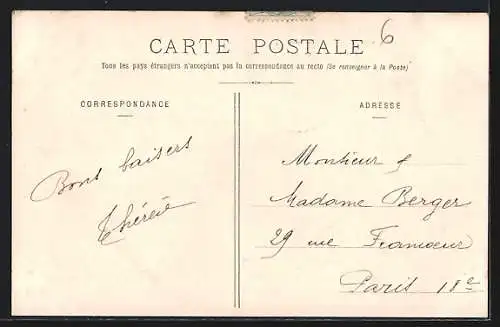 6
CARTE POSTALE
Tous les pays étrangers n'acceptent pas la correspondance au recto (Se renseigner à la Poste)
CORRESPONDANCE
Bons baisers
Thérèse
ADRESSE
Monsieur &
Madame Berger
29 rue Francœur
Paris 18e